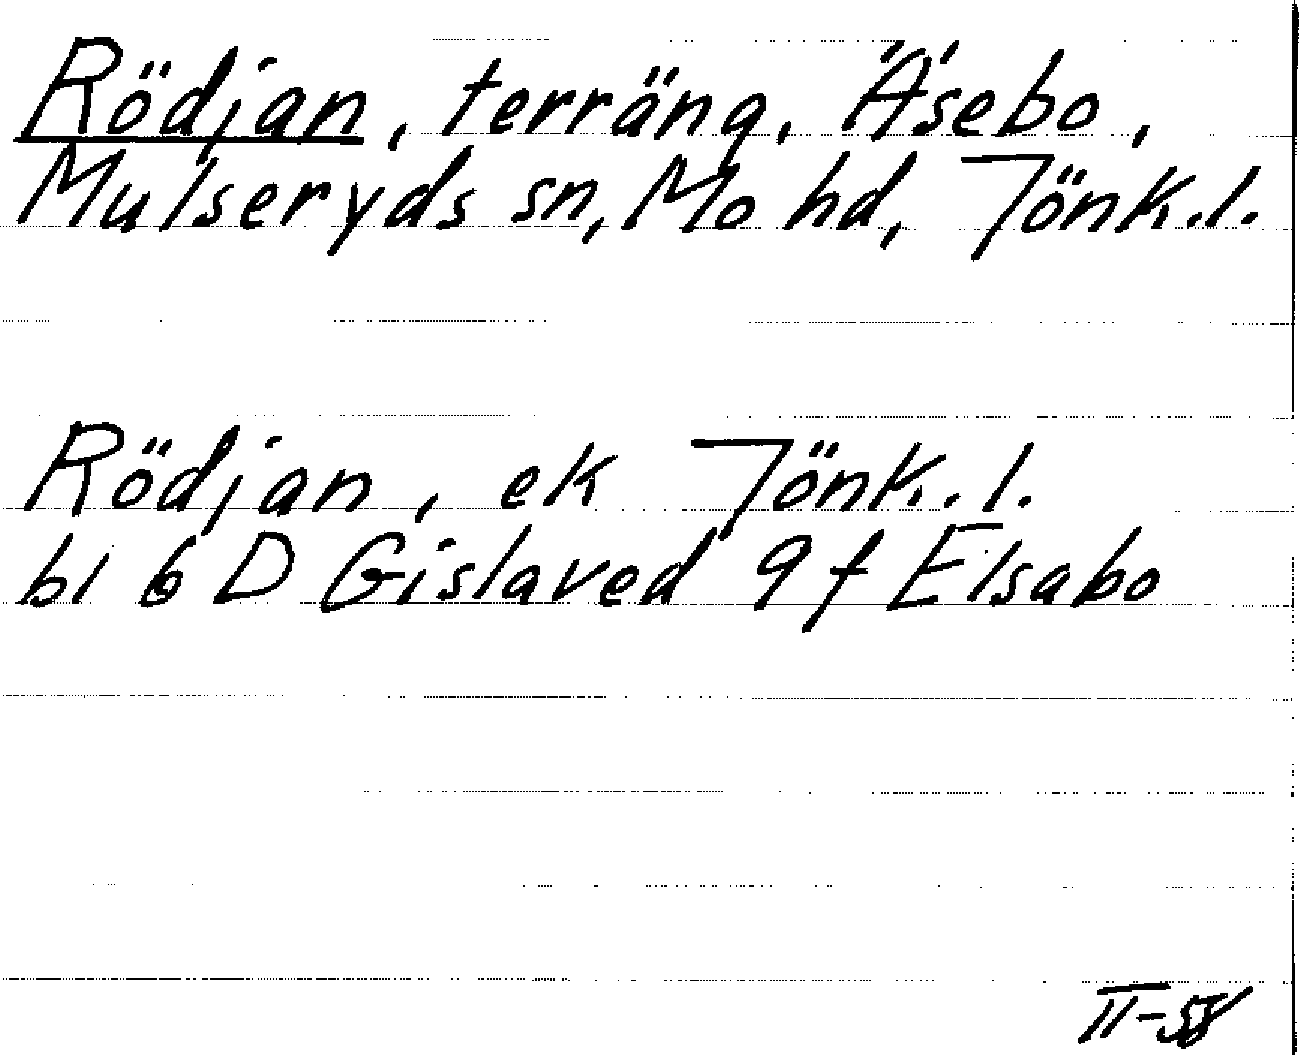 Rödjan, terräng, Äsebo,
Mulseryds sn, Mo hd, Jönk.l.
Rödjan, ek Jönk.l.
bl 6 D Gislaved 9 f Elsabo
II-58